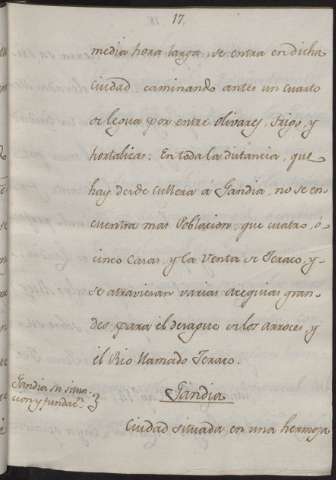 17.
media hora larga, se entra en dicha
ciudad, caminando antes un cuarto
de legua por entre olivares, trigos, y
hortalizas. En toda la distancia, que
hay desde Cullera á Gandia, no se en
cuentra mas Poblacion, que cuatro, ó
cinco Casas, y la Venta de Xeraco, y
se atraviesan varias acequias gran
des para el desague de los arroces, y
el Rio llamado Xeraco.
Gandia su situa
cion y fundac.n
Gandia
Ciudad situada en una hermosa